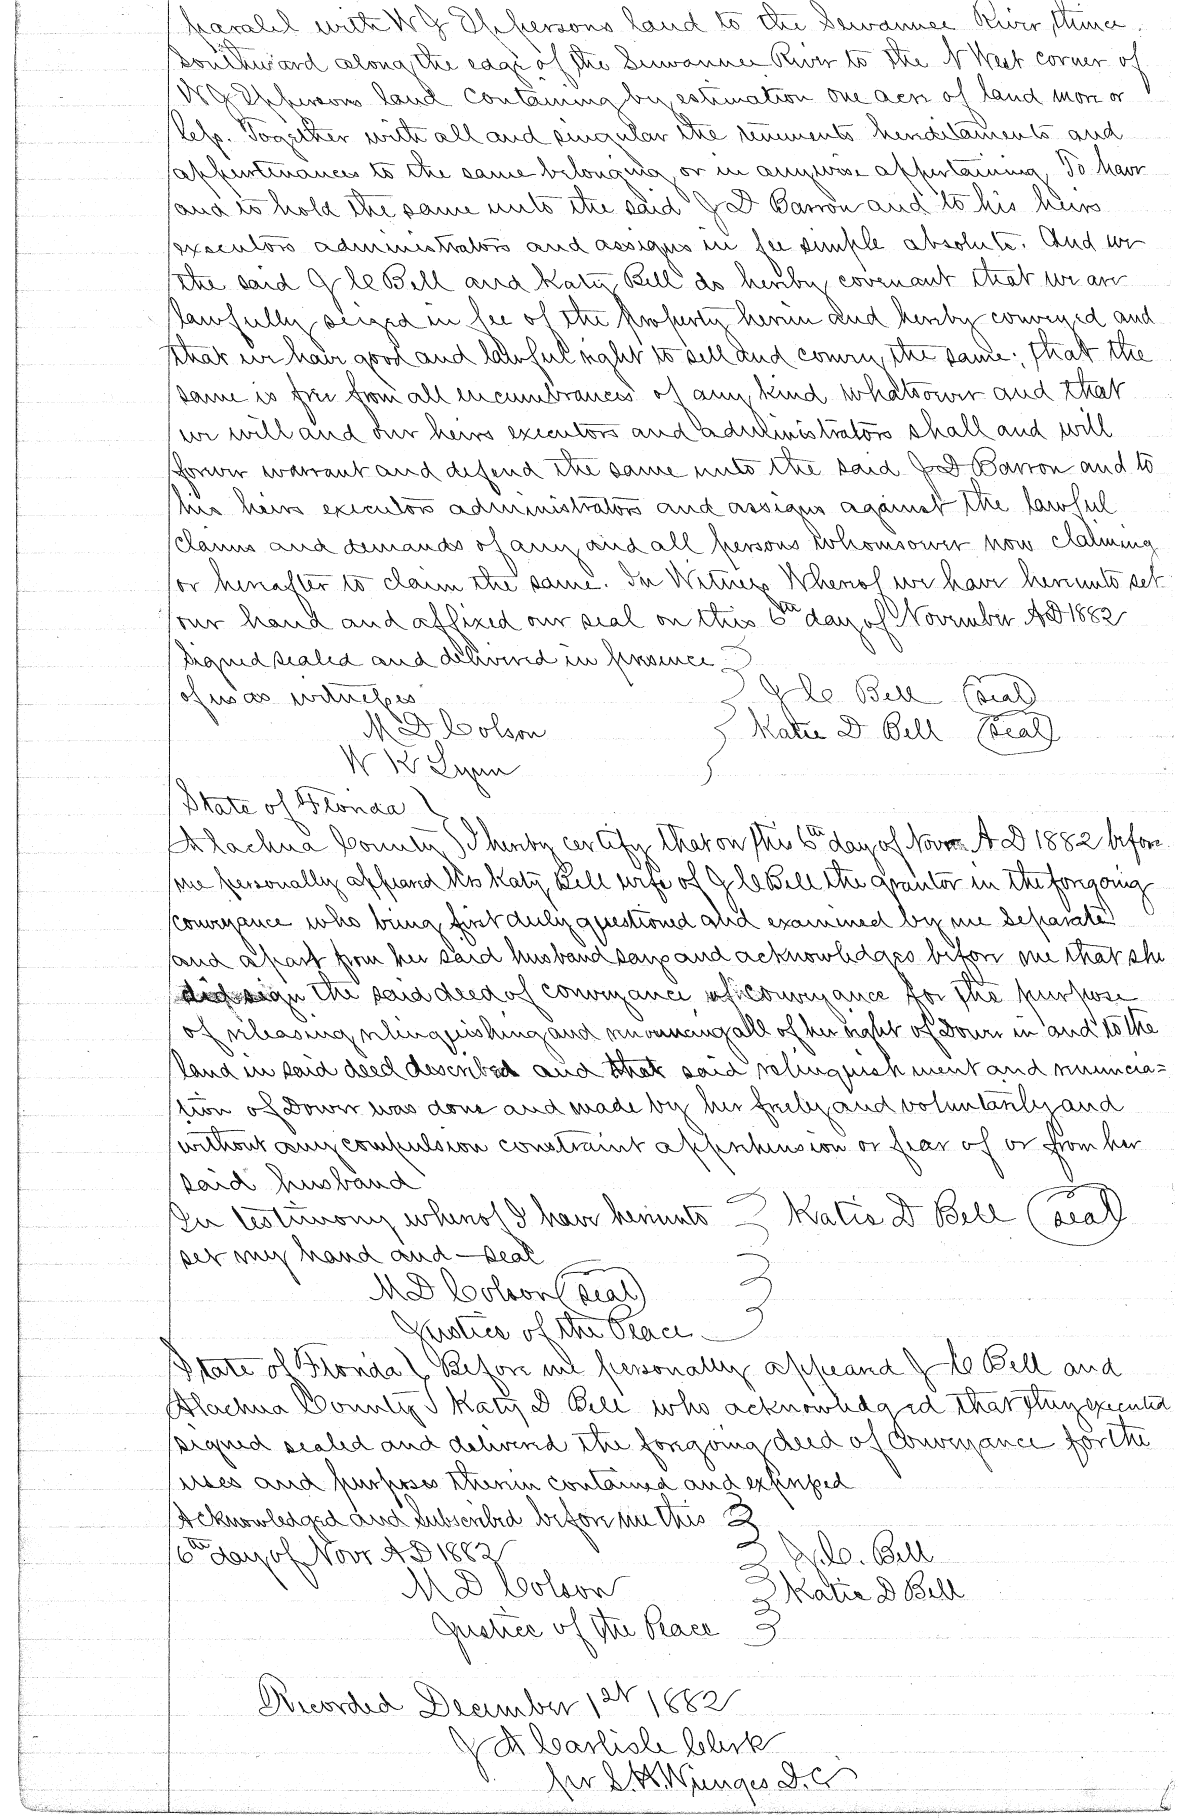 paralel with W G Eppersons land to the Sewannee River, thence
Southward along the edge of the Suwannee River to the N West corner of
W G Eppersons land containing by estimation one acre of land more or
less. Together with all and singular the tenements hereditaments and
appurtenances to the same belonging or in anywise appertaining To have
and to hold the same unto the said J D Barron and to his heirs
executors administrators and assigns in fee simple absolute. And we
the said J C Bell and Katy Bell do hereby covenant that we are
lawfully seized in fee of the property herein and hereby conveyed and
that we have good and lawful right to sell and convey the same; that the
same is free from all encumbrances of any kind whatsoever and that
we will and our heirs executors and administrators shall and will
forever warrant and defend the same unto the said J D Barron and to
his heirs executors administrators and assigns against the lawful
claims and demands of any and all persons whomsoever now claiming
or hereafter to claim the same. In Witness Whereof we have hereunto set
our hand and affixed our seal on this 6th day of November AD 1882
Signed sealed and delivered in presence
of us as witnesses
J C Bell (seal)
M D Colson
Katie D Bell (seal)
W K Lynn
State of Florida
Alachua County I hereby certify that on this 6th day of Novr A D 1882 before
me personally appeard Mrs Katy Bell wife of J C Bell the grantor in the foregoing
conveyance who being first duly questioned and examined by me Separate
and apart from her said husband says and acknowledges before me that she
did sign the said deed of conveyance of conveyance for the purpose
of releasing relinquishing and renouncing all of her right of Dower in and to the
land in said deed described and that said relinquishment and renuncia=
tion of Dower was done and made by her freely and voluntarily and
without any compulsion constraint apprehension or fear of or from her
said husband
In testimony whereof I have hereunto
Katie D Bell (seal)
set my hand and seal
M D Colson (seal)
Justice of the Peace
State of Florida Before me personally appeard J C Bell and
Alachua County Katy D Bell who acknowledged that they executed
signed sealed and delivered the foregoing deed of Conveyance for the
uses and purposes therein contained and expressed
Acknowledged and Subscribed before me this
6th day of Novr AD 1882
J. C. Bell
M D Colson
Katie D Bell
Justice of the Peace
Recorded December 1st 1882
J A Carlisle Clerk
per S. H. Wienges D.C